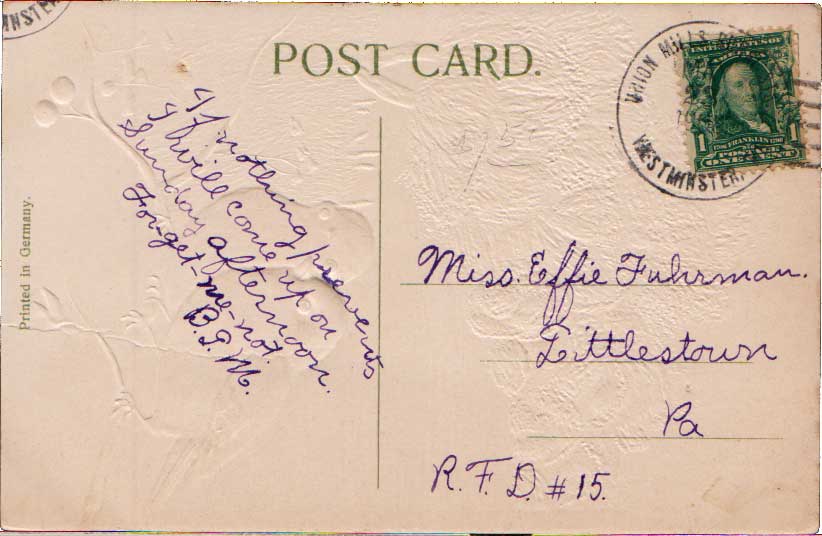 MINSTER
POST CARD.
UNION MILLS
WESTMINSTER.
UNITED STATES OF
AMERICA
1 1706 FRANKLIN 1790 1
POSTAGE
ONE CENT
If nothing prevents
I will come up on
Sunday afternoon.
For-get-me-not.
B. F. M.
Printed in Germany.
Miss. Effie Fuhrman.
Littlestown
Pa
R. F. D. # 15.